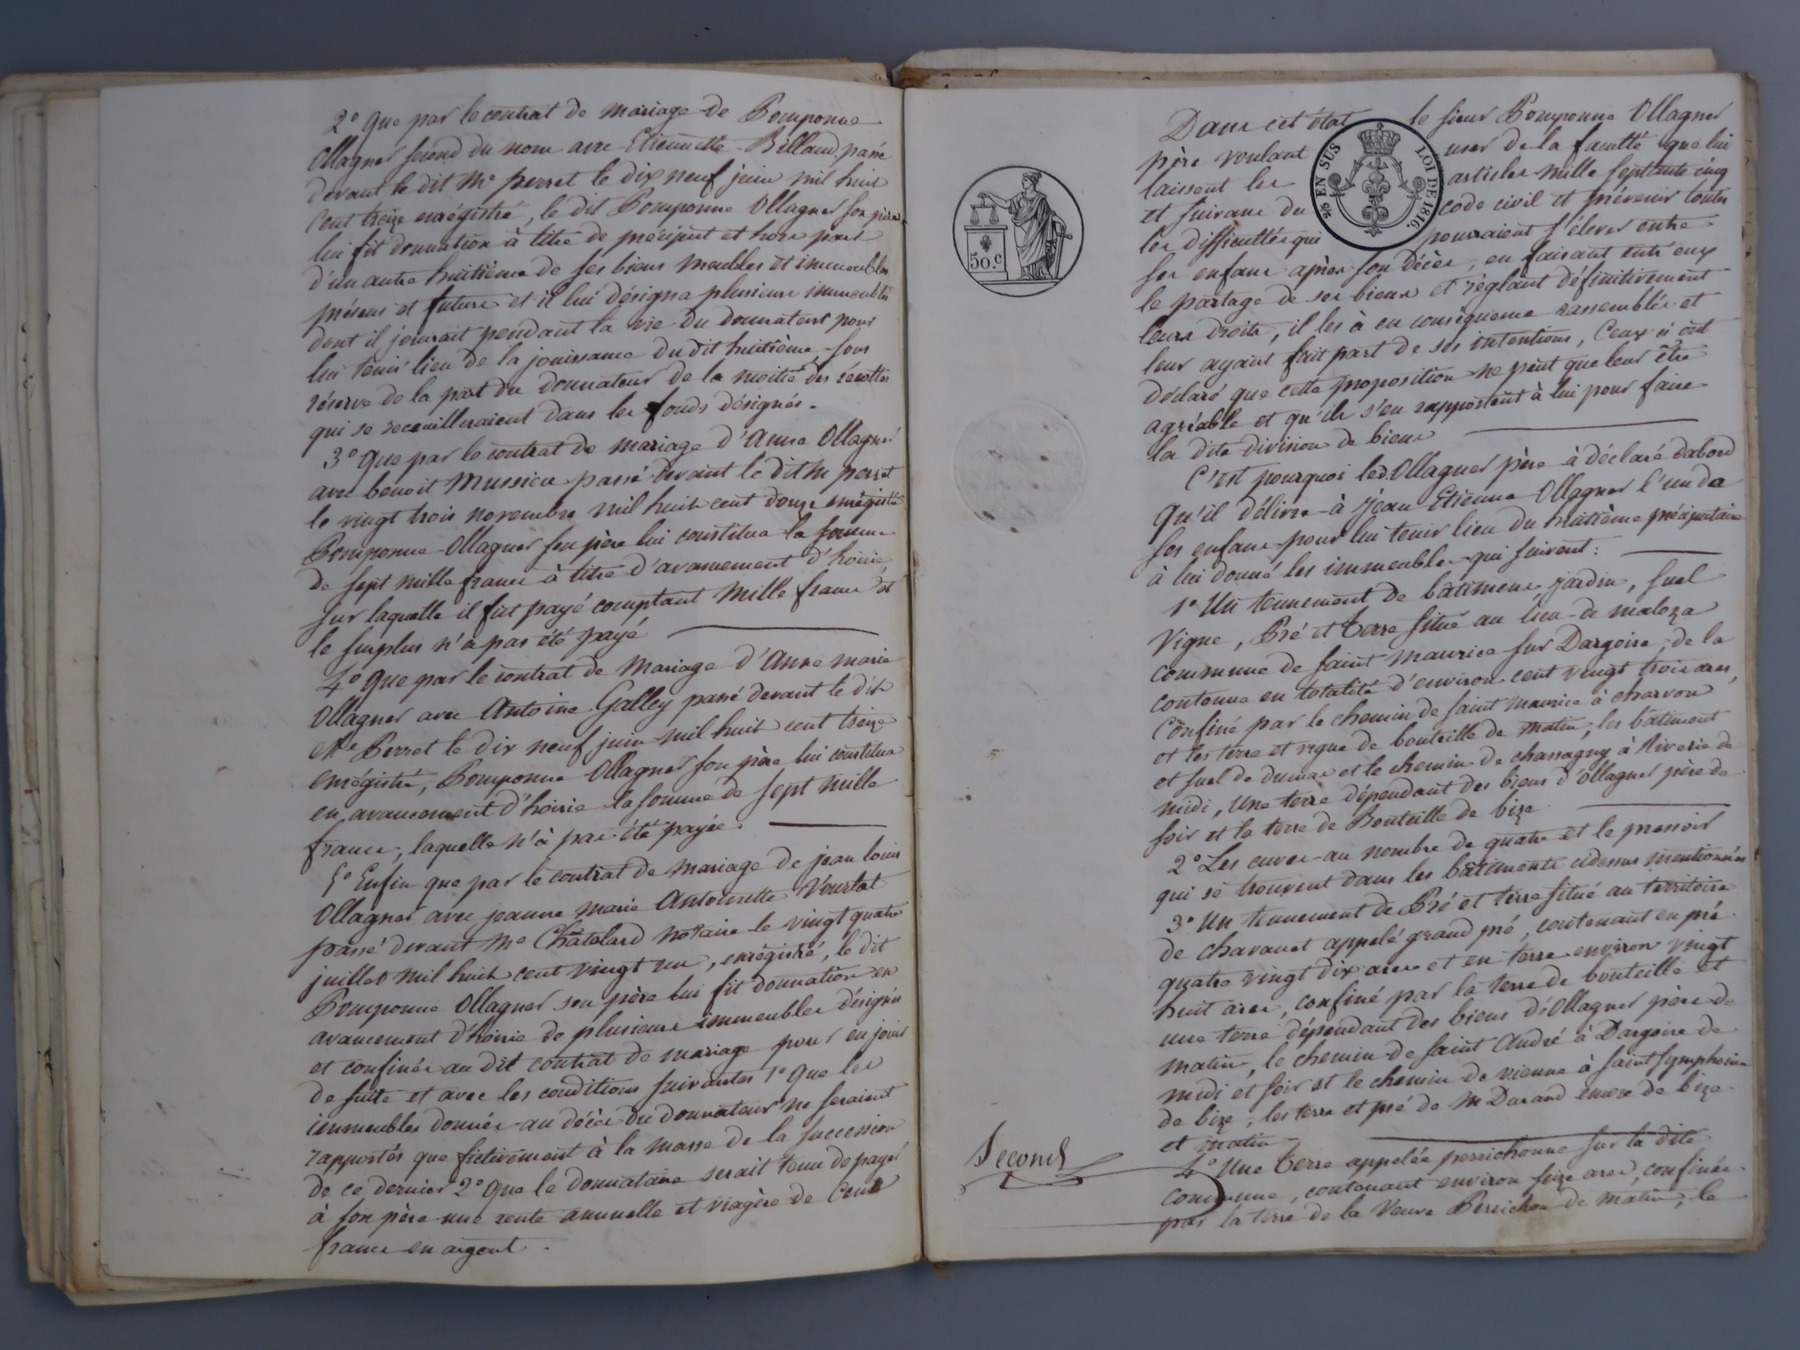 2° que par le contrat de mariage de Pomponne
Ollagner second du nom avec Etiennette Billaud, passé
devant le dit Me perret le dix neuf juin mil huit
cent treize enrégistré, le dit Pomponne Ollagner son père
lui fit donnation à titre de préciput et hors part
d'un autre huitième de ses biens meubles et immeubles
présens et futurs et il lui désigna plusieurs immeubles
dont il jouirait pendant la vie du donnateur pour
lui tenir lieu de la jouissance du dit huitième, sous
réserve de la part du donnateur de la moitié des récoltes
qui se receuilleraient dans les fonds désignés.
3° que par le contrat de mariage d'Anne Ollagner
avec benoit Mussieu passé devant le dit Me perret
le vingt trois novembre mil huit cent douze enrégistré
Pomponne Ollagner son père lui constitua la somme
de sept mille francs à titre d'avancement d'hoirie,
sur laquelle il fut payé comptant mille francs et
le surplus n'a pas été payé
4° que par le contrat de mariage d'Anne marie
Ollagner avec Antoine Galley passé devant le dit
Me Perret le dix neuf juin mil huit cent treize
enrégistré, Pomponne Ollagner son père lui constitua
en avancement d'hoirie la somme de sept mille
francs, laquelle n'à pas été payée
5° Enfin que par le contrat de mariage de jean louis
Ollagner avec jeanne marie Antoinette Vourlat
passé devant Me Châtelard notaire le vingt quatre
juillet mil huit cent vingt un, enrégistré, le dit
Pomponne Ollagner son père lui fit donnation en
avancement d'hoirie de plusieurs immeubles désignés
et confinés au dit contrat de mariage pour en jouir
de suite et avec les conditions suivantes 1° que les
immeubles donnés au décès du donnateur ne seraient
rapportés que fictivement à la masse de la succession
de ce dernier 2° que le donnataire serait tenu de payer
à son père une rente annuelle et viagère de Cent
francs en argent.
Dans cet état le sieur Pomponne Ollagner
père voulant user de la faculté que lui
laissent les articles mille septante cinq
et suivans du code civil et prévenir toutes
les difficultés qui pourraient s'élever entre
ses enfans après son décès, en faisant entr'eux
le partage de ses biens et réglant définitivement
leurs droits, il les à en conséquence rassemblés et
leur ayant fait part de ses intentions, Ceux ci ont
déclaré que cette proposition ne peut que leur être
agréable et qu'ils s'en rapportent à lui pour faire
la dite division de biens
C'est pourquoi led. Ollagner père à déclaré dabord
Qu'il délivre à Jean Etienne Ollagner l'un de
ses enfans pour lui tenir lieu du huitième préciputaire
à lui donné les immeubles qui suivent:
1° Un tennement de bâtimens, jardin, suel
Vigne, Pré et terre situé au lieu de maloza
commune de saint maurice sur Dargoire, de la
contenue en totalité d'environ cent vingt trois ares,
Confiné par le chemin de saint maurice à charvon
et les terre et vigne de bouteille de matin, les bâtiment
et suel de dumas et le chemin de chassagny à Riverie de
midi, une terre dépendant des biens d'ollagner père de
soir et la terre de Bouteille de bize
2° Les cuves au nombre de quatre et le pressoir
qui se trouvent dans les bâtiments cidessus mentionnés
3° Un tennement de Pré et terre situé au territoire
de chavanet appelé grand pré, contenant en pré
quatre vingt dix ares et en terre environ vingt
huit ares, confiné par la terre de bouteille et
une terre dépendant des biens d'Ollagner père de
matin, le chemin de saint André à Dargoire de
midi et soir et le chemin de vienne à saint symphorien
de bize, les terre et pré de m Durand encore de bize
et matin
4° Une terre appelée perrichonne sur la dite
commune, contenant environ seize ares, confinée
par la terre de la Veuve Perrichon de matin, le
Second
50.c
25 EN SUS
LOI DE 1816.